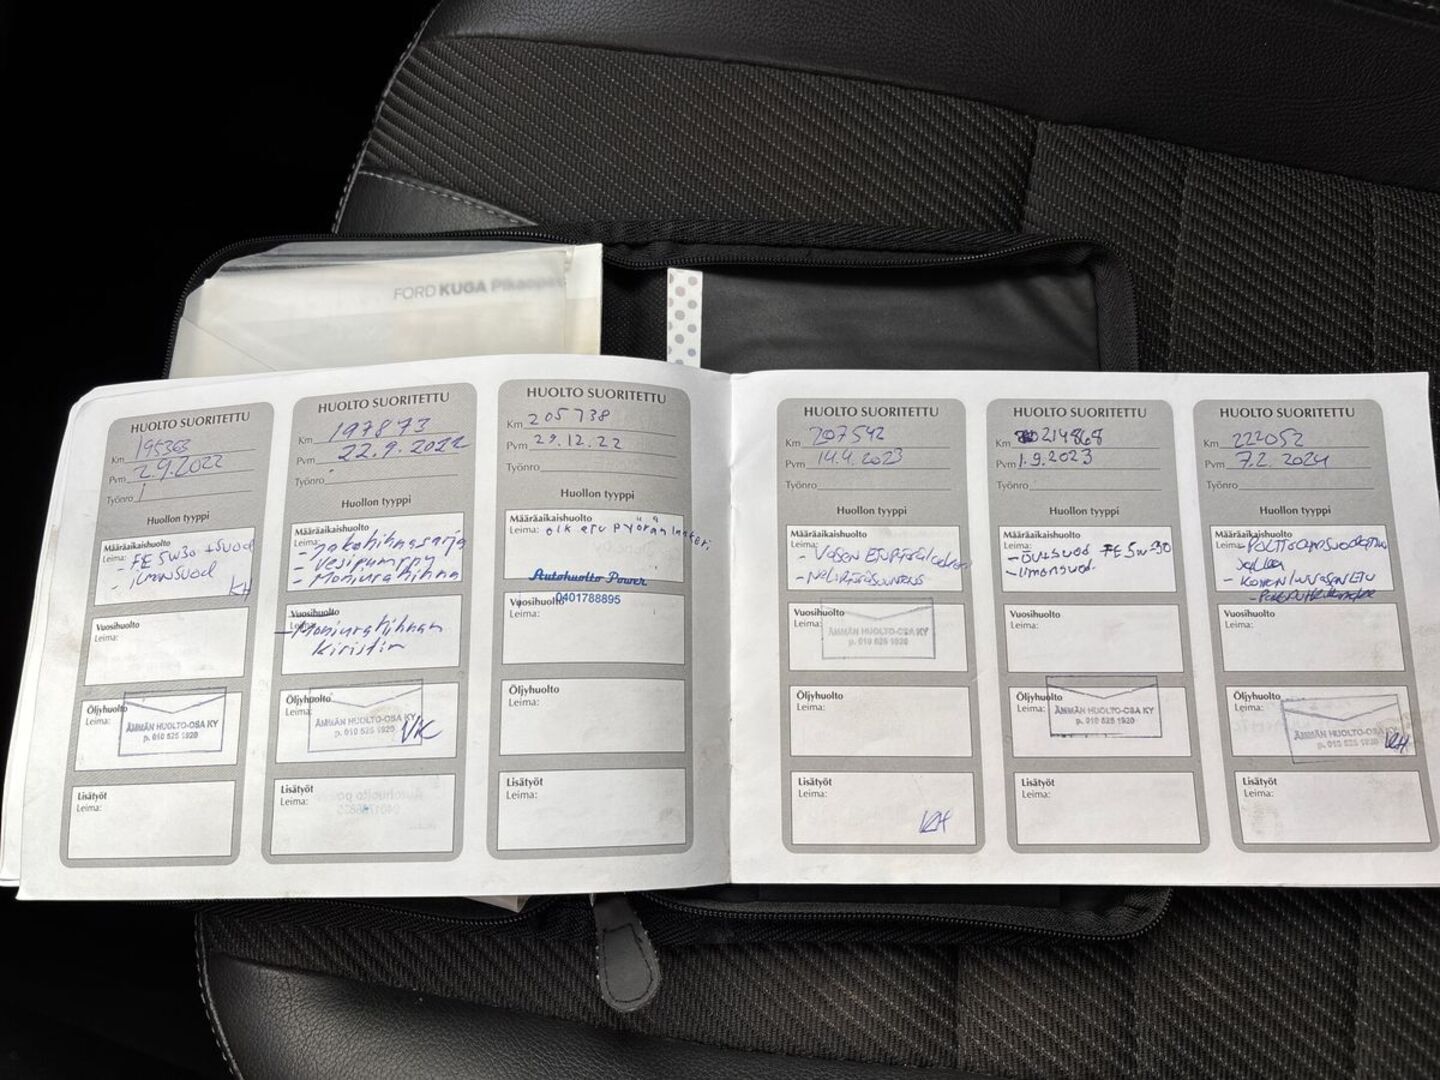 FORD KUGA Pikaopas
HUOLTO SUORITETTU
Km 195363
Pvm 2.9.2022
Työnro
Huollon tyyppi
Määräaikaishuolto
Leima: - FE 5W30 + Suod
- ilmansuod
KH
Vuosihuolto
Leima:
Öljyhuolto
Leima:
ÄMMÄN HUOLTO-OSA KY
p. 010 525 1920
Lisätyöt
Leima:
HUOLTO SUORITETTU
Km 197873
Pvm 22.9.2022
Työnro
Huollon tyyppi
Määräaikaishuolto
Leima: - Jakohihnasarja
- Vesipumppu
- Moniurahihna
Vuosihuolto
Leima:
- Moniurahihnan
kiristin
Öljyhuolto
Leima:
ÄMMÄN HUOLTO-OSA KY
p. 010 525 1920
VK
Lisätyöt
Leima:
HUOLTO SUORITETTU
Km 205738
Pvm 29.12.22
Työnro
Huollon tyyppi
Määräaikaishuolto
Leima: oik etu pyörän laakeri
Autohuolto Power
0401788895
Vuosihuolto
Leima:
Öljyhuolto
Leima:
Lisätyöt
Leima:
HUOLTO SUORITETTU
Km 207542
Pvm 14.4.2023
Työnro
Huollon tyyppi
Määräaikaishuolto
Leima:
- VASEN ETUPYÖRÄLAAKERI
- NELIPYÖRÄSUUNTAUS
Vuosihuolto
Leima:
ÄMMÄN HUOLTO-OSA KY
p. 010 525 1920
Öljyhuolto
Leima:
Lisätyöt
Leima:
KH
HUOLTO SUORITETTU
Km 214868
Pvm 1.9.2023
Työnro
Huollon tyyppi
Määräaikaishuolto
Leima:
FE 5W-30
- ilmansuod.
Vuosihuolto
Leima:
Öljyhuolto
Leima:
ÄMMÄN HUOLTO-OSA KY
p. 010 525 1920
Lisätyöt
Leima:
HUOLTO SUORITETTU
Km 222052
Pvm 7.2.2024
Työnro
Huollon tyyppi
Määräaikaishuolto
Leima:
Vuosihuolto
Leima:
Öljyhuolto
Leima:
ÄMMÄN HUOLTO-OSA KY
p. 010 525 1920
KH
Lisätyöt
Leima: